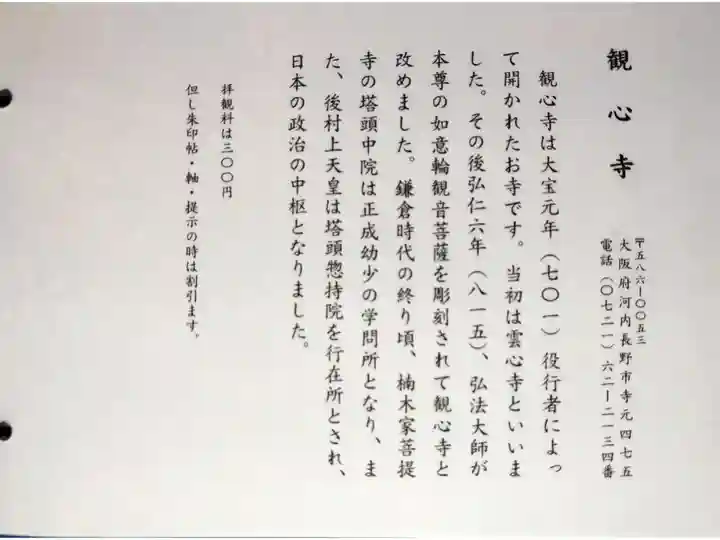 観心寺
〒五八六ー〇〇五三
大阪府河内長野市寺元四七五
電話（〇七二一）六二ー二一三四番
観心寺は大宝元年（七〇一）役行者によっ
て開かれたお寺です。当初は雲心寺といいま
した。その後弘仁六年（八一五）、弘法大師が
本尊の如意輪観音菩薩を彫刻されて観心寺と
改めました。鎌倉時代の終り頃、楠木家菩提
寺の塔頭中院は正成幼少の学問所となり、ま
た、後村上天皇は塔頭惣持院を行在所とされ、
日本の政治の中枢となりました。
拝観料は三〇〇円
但し朱印帖・軸・提示の時は割引ます。